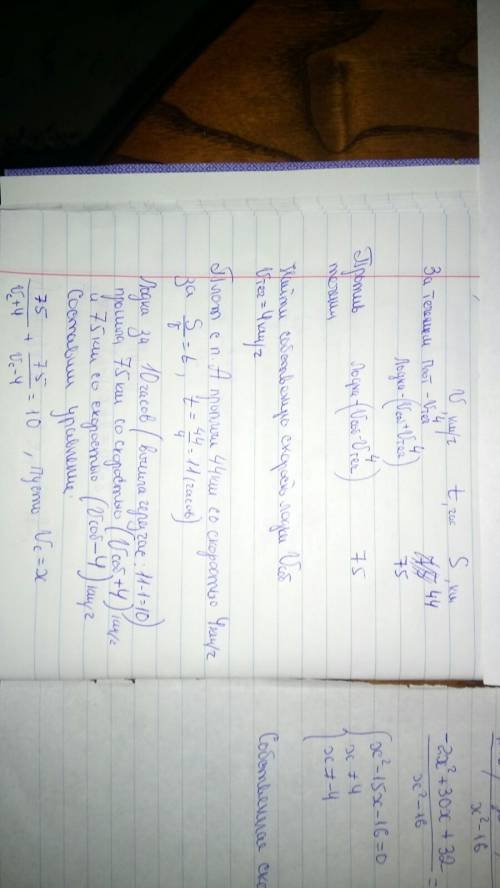 V, км/ч t, час S, км
За течением Плот - Vтеч 4 44
Лодка - (Vсоб + Vтеч 4) 75
Против Лодка - (Vсоб - Vтеч 4) 75
течения
Найти собственную скорость лодки Vсоб
Vтеч = 4 км/ч
Плот с п. А проплыл 44 км со скоростью 4 км/ч
За S/V = t, t = 44/4 = 11 (часов)
Лодка за 10 часов (вышла через час: 11-1=10)
прошла 75 км со скоростью (Vсоб + 4) км/ч
и 75 км со скоростью (Vсоб - 4) км/ч
Составим уравнение:
75/(Vс+4) + 75/(Vс-4) = 10, пусть Vс = x
x²-16
(-2x²+30x+32)/(x²-16) =
{ x²-15x-16=0
x≠4
x≠-4
Собственная ско